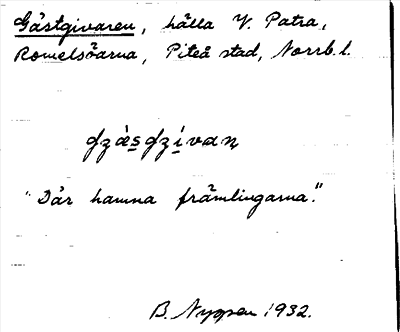 Gästgivaren, hälla V. Patra,
Romelsöarna, Piteå stad, Norrb. l.
"Där hamna främlingarna."
B. Nygren 1932.